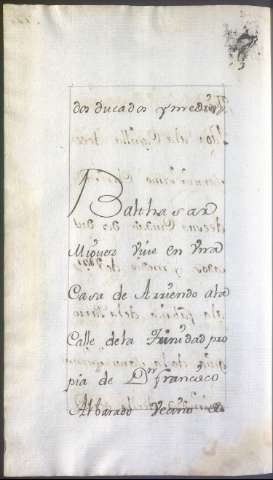 dos ducados y medio
Balthasar
Miguez Vive en Vna
Casa de Arriendo ala
Calle dela Trinidad pro
pia de Dn Francisco
Albarado Vecino